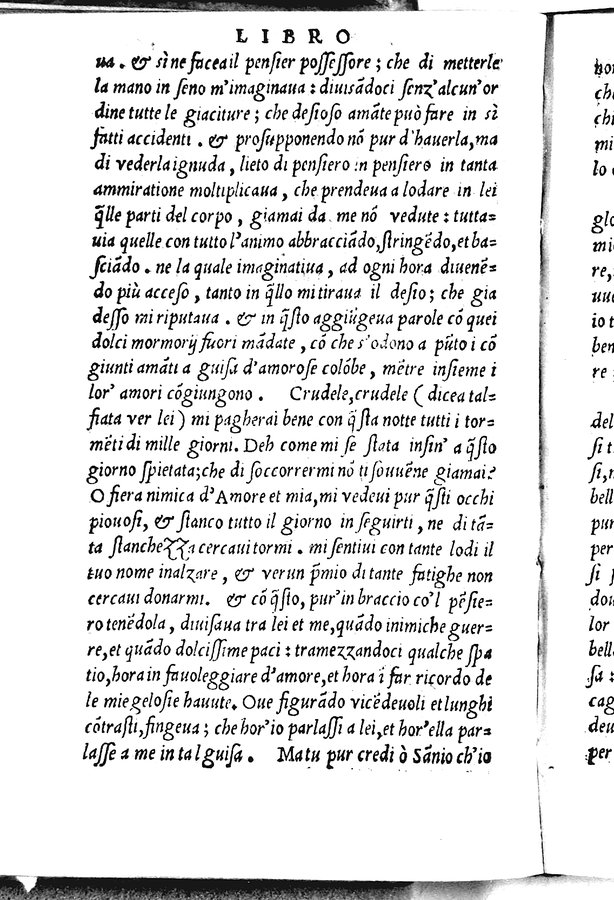 LIBRO
ua. & sì ne facea il pensier possessore; che di metterle
la mano in seno m'imaginaua: diuisãdoci senz'alcun'or
dine tutte le giaciture; che desioso amãte può fare in sì
fatti accidenti. & prosupponendo nõ pur d'hauerla, ma
di vederla ignuda, lieto di pensiero in pensiero in tanta
ammiratione moltiplicaua, che prendeua a lodare in lei
q̃lle parti del corpo, giamai da me nõ vedute: tutta=
uia quelle con tutto l'animo abbracciãdo, stringẽdo, et ba=
sciãdo. ne la quale imaginatiua, ad ogni hora diuenẽ=
do più acceso, tanto in q̃llo mi tiraua il desio; che gia
desso mi riputaua. & in q̃sto aggiũgeua parole cõ quei
dolci mormorij fuori mãdate, cõ che s'odono a pũto i cõ
giunti amãti a guisa d'amorose colõbe, mẽtre insieme i
lor' amori cõgiungono. Crudele, crudele (dicea tal=
fiata ver lei) mi pagherai bene con q̃sta notte tutti i tor=
mẽti di mille giorni. Deh come mi se stata insin' a q̃sto
giorno spietata; che di soccorrermi nõ ti souuẽne giamai?
O fiera nimica d'Amore et mia, mi vedeui pur q̃sti occhi
piouosi, & stanco tutto il giorno in seguirti, ne di tã=
ta stanchezza cercaui tormi. mi sentiui con tante lodi il
tuo nome inalzare, & verun p̃mio di tante fatighe non
cercaui donarmi. & cõ q̃sto, pur'in braccio co'l pẽsie=
ro tenẽdola, diuisaua tra lei et me, quãdo inimiche guer=
re, et quãdo dolcissime paci: tramezzandoci qualche spa
tio, hora in fauoleggiare d'amore, et hora ĩ far ricordo de
le mie gelosie hauute. Oue figurãdo vicẽdeuoli et lunghi
cõtrasti, fingeua; che hor'io parlassi a lei, et hor'ella par=
lasse a me in tal guisa. Ma tu pur credi ò Sãnio ch'io